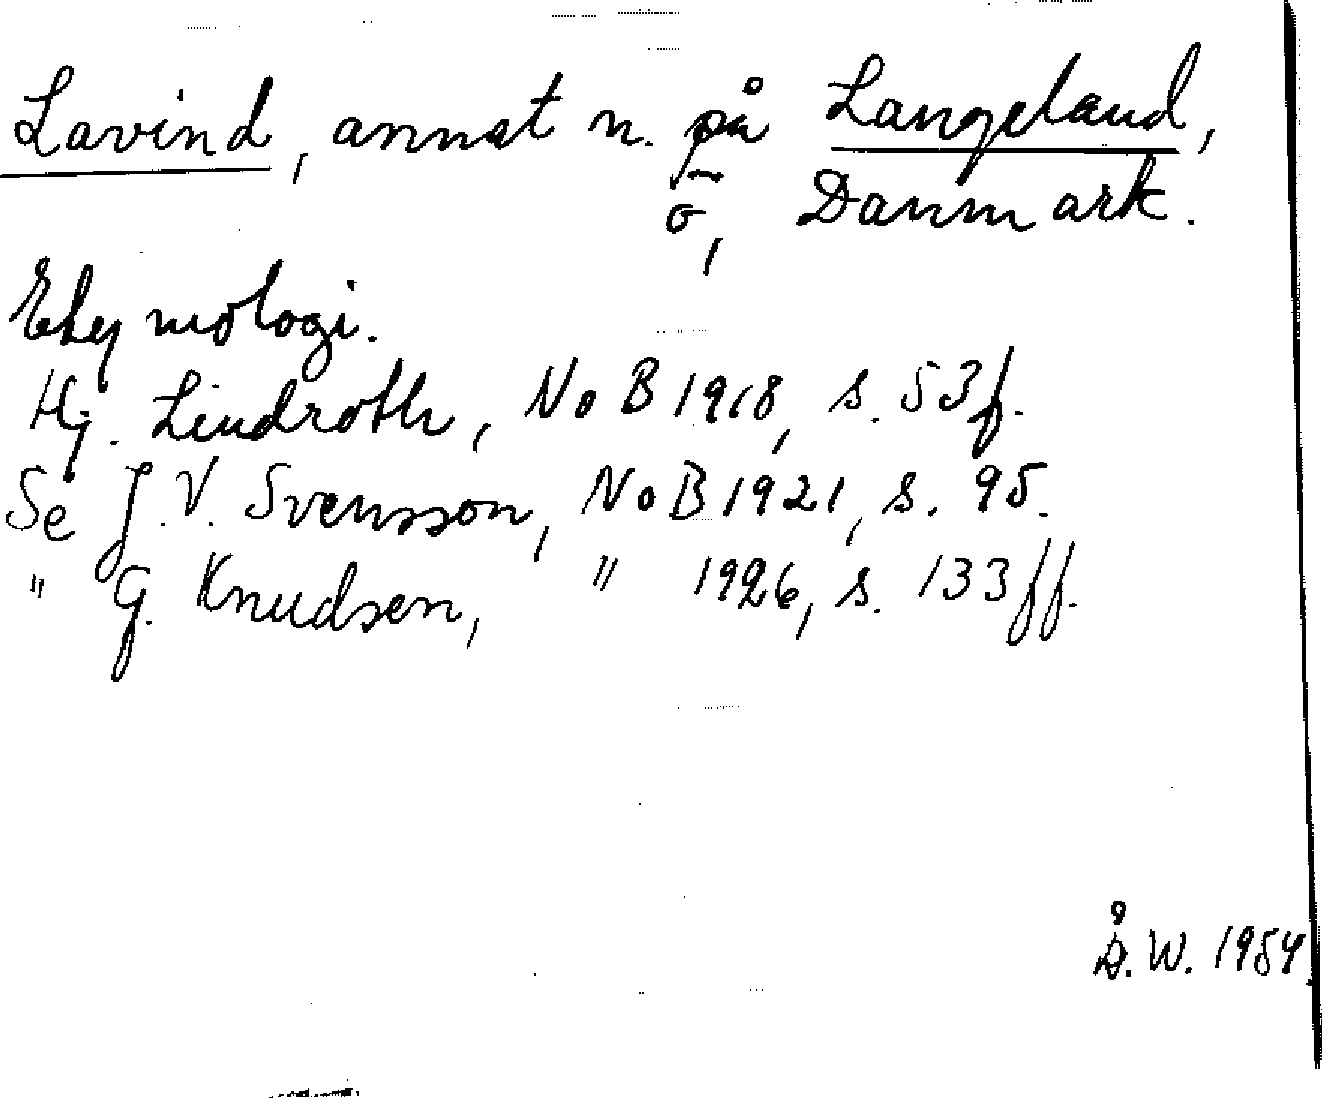 Lavind, annat n. på Langeland,
ō, Danmark.
Etymologi.
Hj. Lindroth, NoB 1918, s. 53f.
Se J. V. Svensson, NoB 1921, s. 95.
" G. Knudsen, " 1926, s. 133ff.
Å. W. 1954